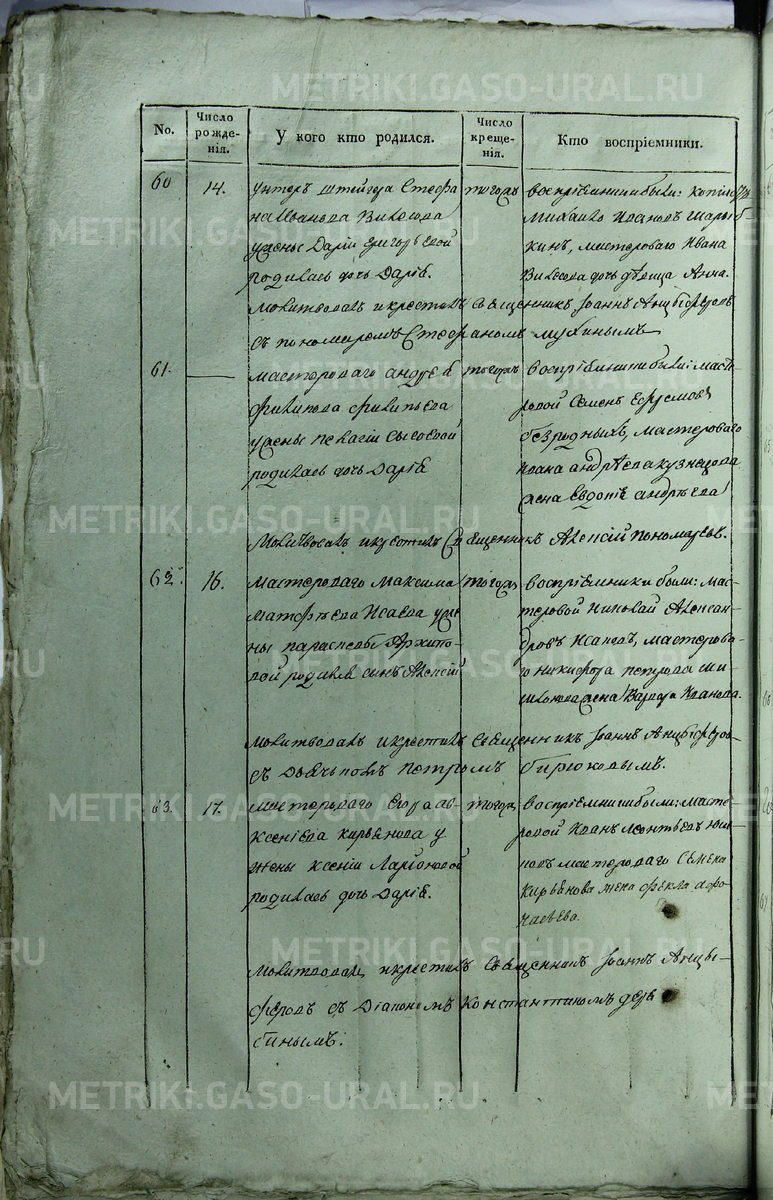 METRIKI.GASO-URAL.RU
No.
Число рожде-нія.
У кого кто родился.
Число креще-нія.
Кто воспріемники.
60
14.
унтеръ штейгера Стефа
на Иванова
у жены Даріи Григорьевой
родилась дочь Дарія.
тогожъ
воспріемники были:
Михайло Ивановъ Шары
кинъ, мастероваго Ивана
дочь дѣвица Анна.
Молитвовалъ и крестилъ Священникъ Іоаннъ Анцыферовъ
съ пономаремъ Стефаномъ Мухинымъ
61.
мастероваго Андрея
Филипова Филипьева
у жены Пелагіи Сысоевой
родилась дочь Дарія
тогожъ
воспріемники были: масте
ровой Семенъ Ефремовъ
Безродныхъ, мастероваго
Ивана Андрѣева Кузнецова
жена Евдокія Андрѣева
Молитвовалъ и крестилъ Священникъ Алексій Пономаревъ.
62.
16.
мастероваго Максима
Матфѣева Исаева у же
ны Параскевы Архипо
вой родился сынъ Алексій
тогожъ
воспріемники были: мас-
теровой Николай Алексан-
дровъ Исаковъ, мастерова-
го Никифора Петрова
жена Варвара Иванова.
Молитвовалъ и крестилъ Священникъ Іоаннъ Анцыферовъ
съ дьячкомъ Петромъ Бирюковымъ.
63.
17.
мастероваго Егора Ав-
ксеніева Кирьянова у
жены Ксеніи Ларіоновой
родилась дочь Дарія.
тогожъ
воспріемники были: масте-
ровой Иванъ Леонтьевъ
мастероваго Семена
Кирьянова жена Фекла Афо
насьева.
Молитвовалъ и крестилъ Священникъ Іоаннъ Анцы-
феровъ съ Діакономъ Константиномъ Деря
биннымъ.